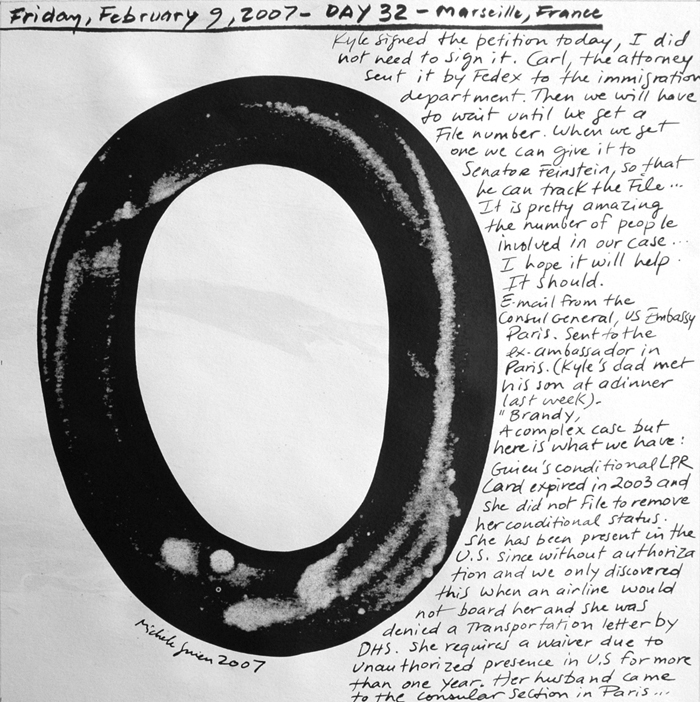 Friday, February 9, 2007 - DAY 32 - Marseille, France
Kyle signed the petition today, I did
not need to sign it. Carl, the attorney
sent it by Fedex to the immigration
department. Then we will have
to wait until we get a
File number. When we get
one we can give it to
Senator Feinstein, so that
he can track the File...
It is pretty amazing
the number of people
involved in our case...
I hope it will help.
It should.
E-mail from the
Consul General, US Embassy
Paris. Sent to the
ex-ambassador in
Paris. (Kyle's dad met
his son at a dinner
last week).
"Brandy,
A complex case but
here is what we have:
Guieu's conditional LPR
Card expired in 2003 and
she did not file to remove
her conditional status.
She has been present in the
U.S. since without authoriza
tion and we only discovered
this when an airline would
not board her and she was
denied a Transportation letter by
DHS. She requires a waiver due to
unauthorized presence in U.S for more
than one year. Her husband came
to the consular section in Paris...
Michele Guieu 2007